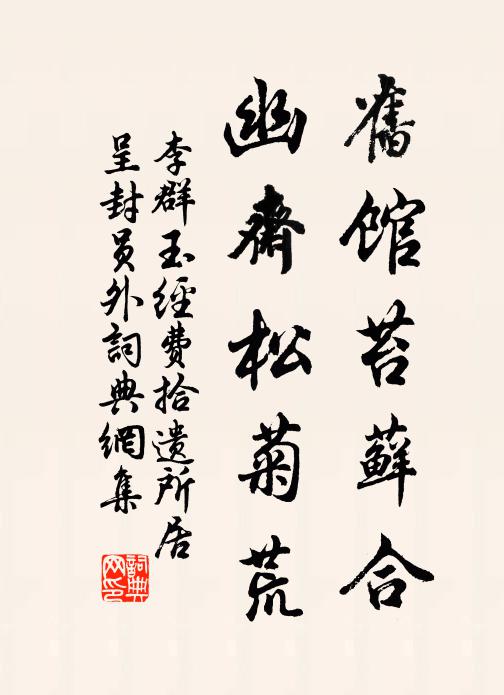 舊馆苔蘚合
幽齋松菊荒
李群玉經費拾遺所居
呈封员外詞典網集
詞典网印